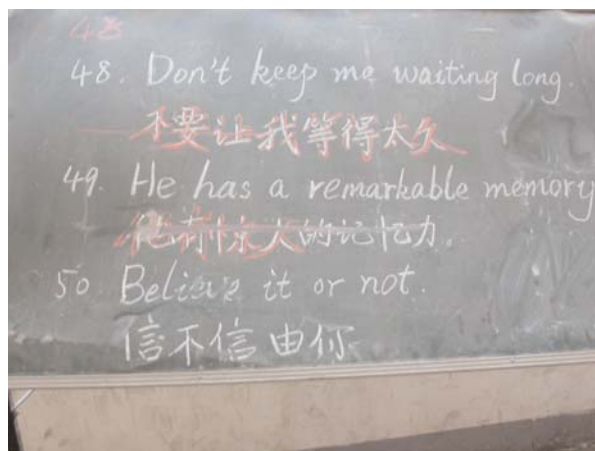 48
48. Don't keep me waiting long.
不要让我等得太久
49. He has a remarkable memory
他有惊人的记忆力。
50. Believe it or not.
信不信由你